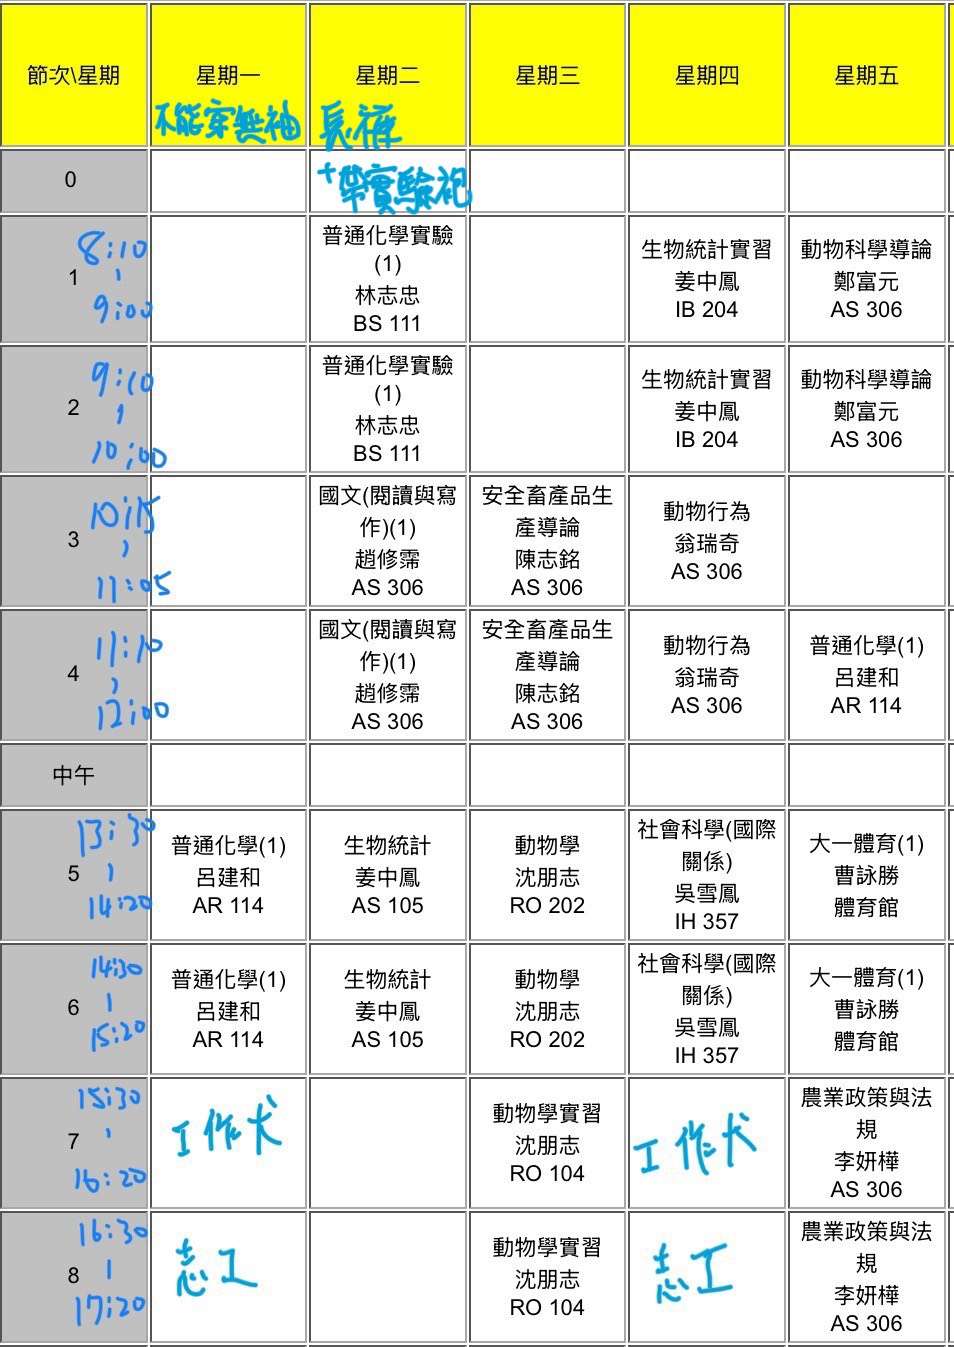 節次\星期
星期一
星期二
星期三
星期四
星期五
不能穿無袖
長褲
+帶實驗袍
0
1
8:10
|
9:00
普通化學實驗
(1)
林志忠
BS 111
生物統計實習
姜中鳳
IB 204
動物科學導論
鄭富元
AS 306
2
9:10
|
10:00
普通化學實驗
(1)
林志忠
BS 111
生物統計實習
姜中鳳
IB 204
動物科學導論
鄭富元
AS 306
3
10:15
|
11:05
國文(閱讀與寫
作)(1)
趙修霈
AS 306
安全畜產品生
產導論
陳志銘
AS 306
動物行為
翁瑞奇
AS 306
4
11:10
|
12:00
國文(閱讀與寫
作)(1)
趙修霈
AS 306
安全畜產品生
產導論
陳志銘
AS 306
動物行為
翁瑞奇
AS 306
普通化學(1)
呂建和
AR 114
中午
5
13:30
|
14:20
普通化學(1)
呂建和
AR 114
生物統計
姜中鳳
AS 105
動物學
沈朋志
RO 202
社會科學(國際
關係)
吳雪鳳
IH 357
大一體育(1)
曹詠勝
體育館
6
14:30
|
15:20
普通化學(1)
呂建和
AR 114
生物統計
姜中鳳
AS 105
動物學
沈朋志
RO 202
社會科學(國際
關係)
吳雪鳳
IH 357
大一體育(1)
曹詠勝
體育館
7
15:30
|
16:20
工作犬
動物學實習
沈朋志
RO 104
工作犬
農業政策與法
規
李妍樺
AS 306
8
16:30
|
17:20
志工
動物學實習
沈朋志
RO 104
志工
農業政策與法
規
李妍樺
AS 306